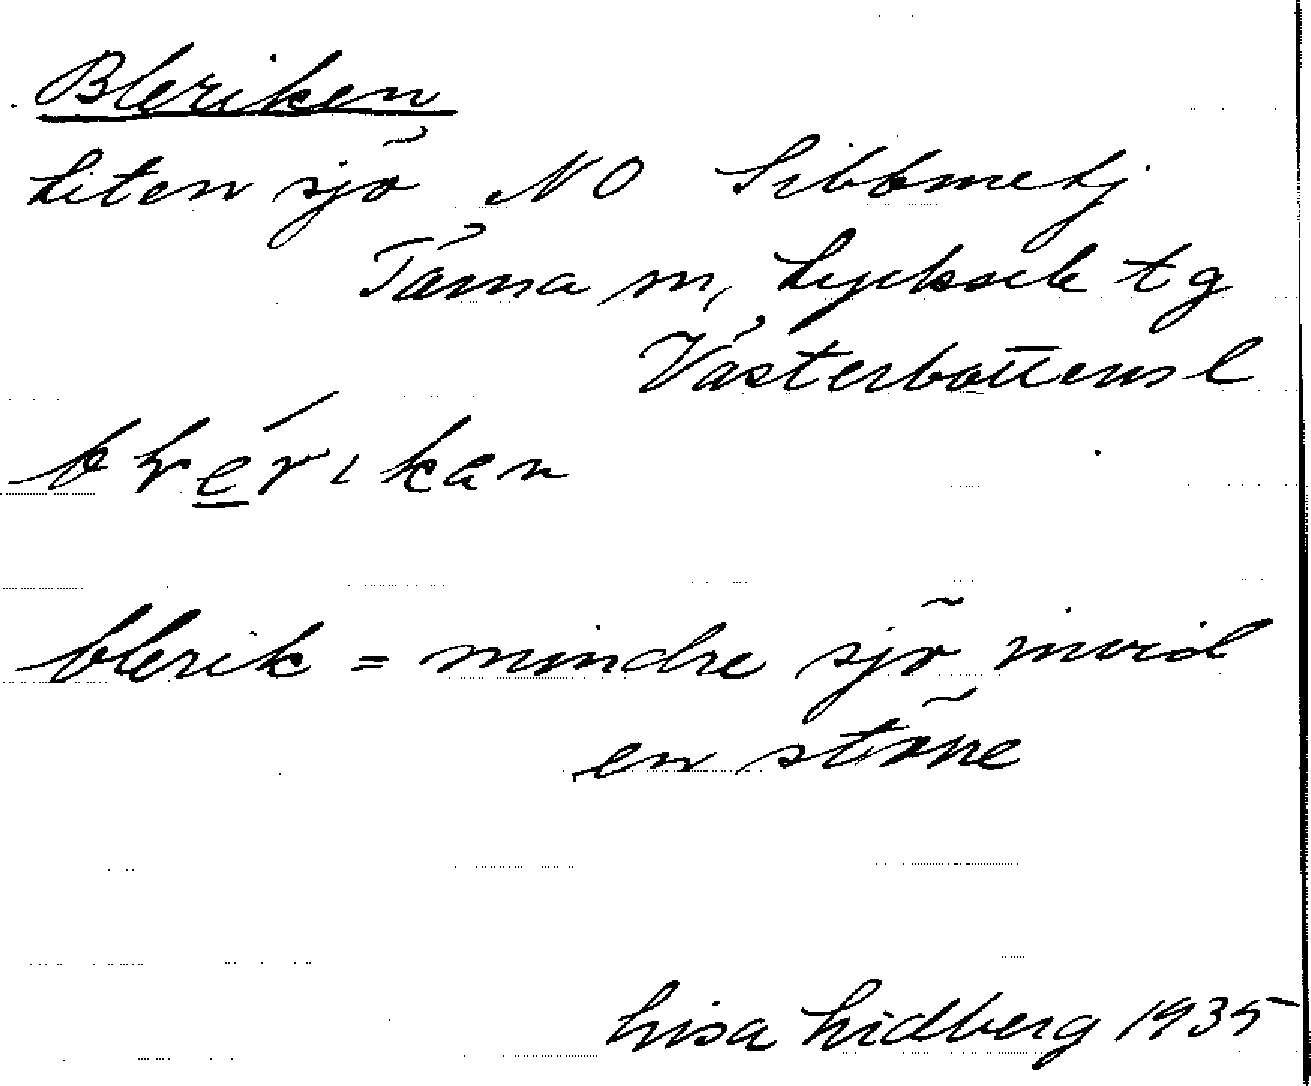 Bleriken
Liten sjö NO
Tärna sn, Lycksele tg
Västerbottens l
blerik = mindre sjö invid
en större
Lisa Lidberg 1935